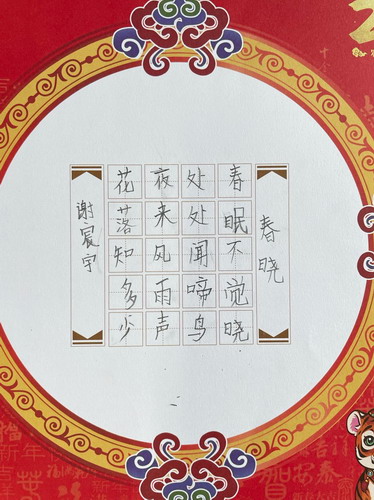 春晓
春眠不觉晓
处处闻啼鸟
夜来风雨声
花落知多少
谢宸宇